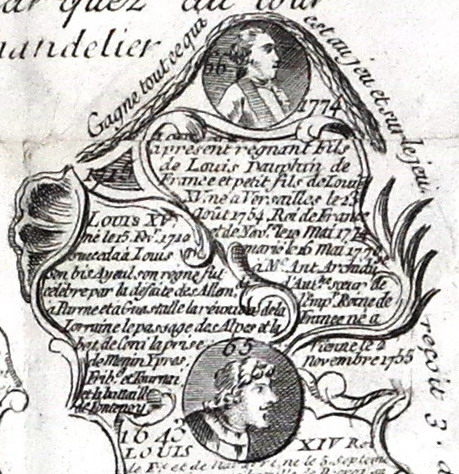 quez au tour
handelier
Gagne tout ce qui
est au jeu et sur le jeu
reçoit 3
66
1774
apresent regnant Fils
de Louis Dauphin de
France et petit fils de Louis
XV. né a Versailles le 23
Août 1754. Roi de France
et de Nav. le 10 Mai 1774
marie le 16 Mai
a M. Ant. Archidu
l'Au. sœur de
l'Emp. Reine de
France né a
Vienne le 2
Novembre 1755
1715
LOUIS XV
né le 15. Fev. 1710
succeda à Louis
son bis Ayeul, son regne fut
celebre par la défaite des Allem.
a Parme et a Guastalle la réunion de la
Lorraine le passage des Alpes et la
bat. de Coni la prise
de Menin Ypres,
Frib. et Tournai,
et la battaille
de Fontenoy
65
1643
LOUIS XIV Roi
le 5. Septem